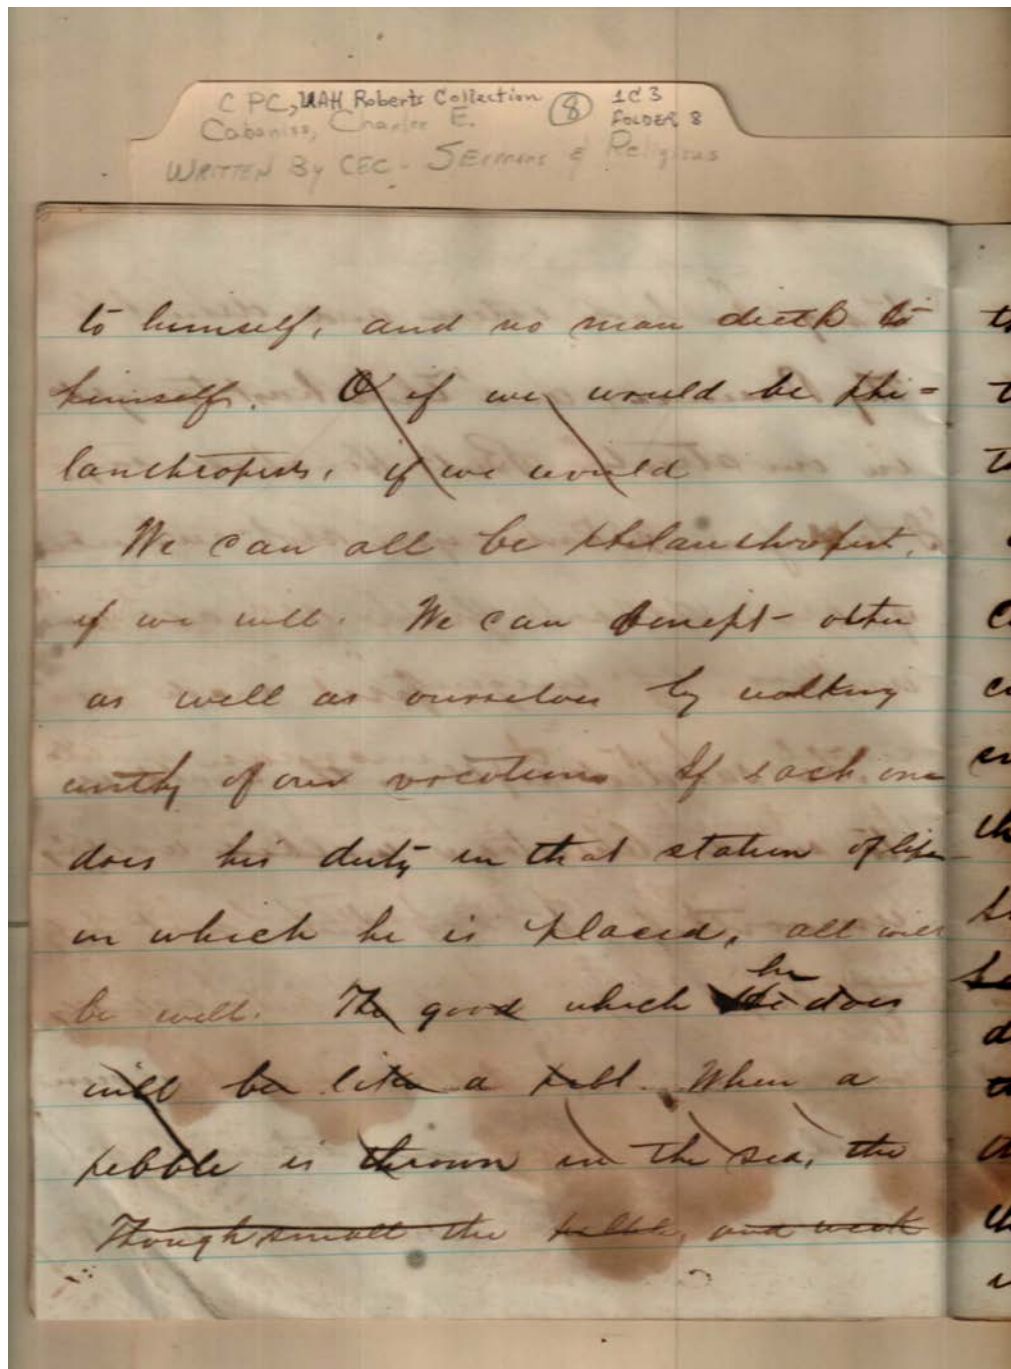 C PC, UAH Roberts Collection (8) 1C3
Cabaniss, Charles E. FOLDER 8
WRITTEN By CEC - SERMONS & Religious
to himself, and no man dieth to
himself. O if we would be phi-
lanthropists, if we would
We can all be philanthropist,
if we will. We can benefit other
as well as ourselves by walking
worthy of our vocations If each one
does his duty in that station of life
in which he is placed, all will
be well. The good which he does
will be like a pebbl. When a
pebble is thrown in the sea, the
Though small the pebble, and weak